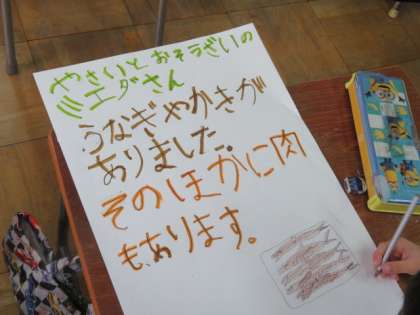 やさいとおそうざいの
ミエダさん
うなぎやかきが
ありました。
そのほかに肉
も、あります。